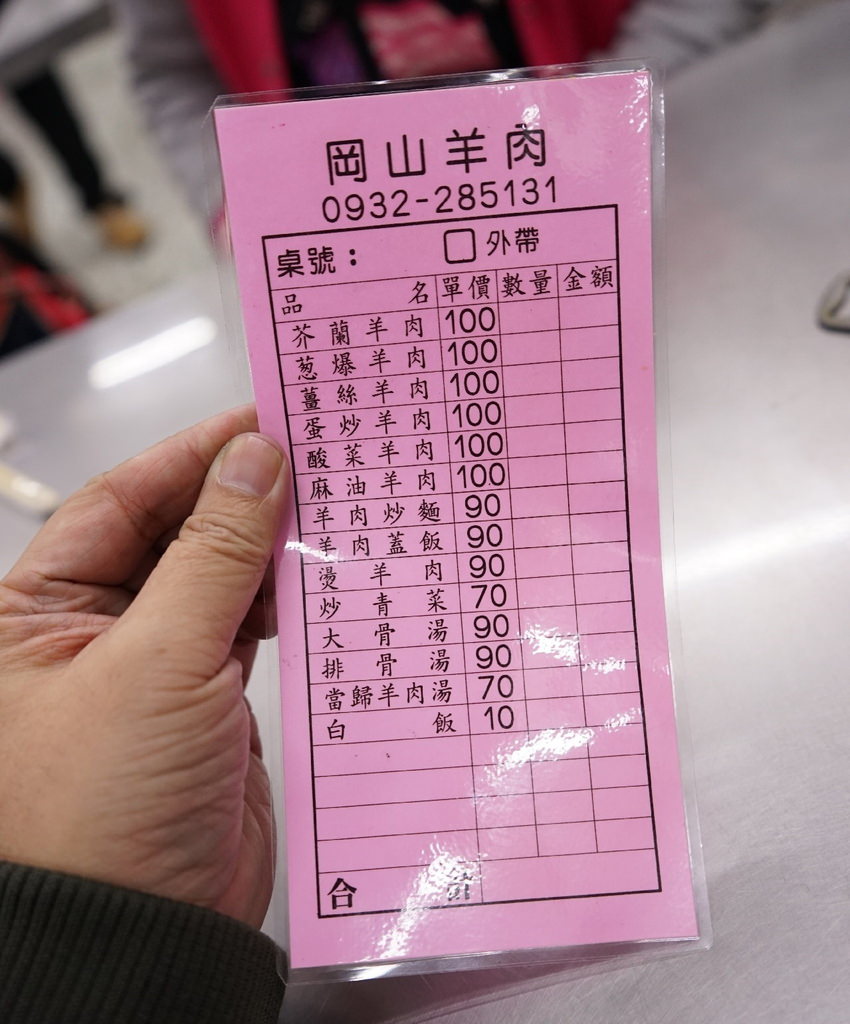 岡山羊肉
0932-285131
桌號： 外帶
品名 單價 數量 金額
芥蘭羊肉 100
葱爆羊肉 100
薑絲羊肉 100
蛋炒羊肉 100
酸菜羊肉 100
麻油羊肉 100
羊肉炒麵 90
羊肉蓋飯 90
燙羊肉 90
炒青菜 70
大骨湯 90
排骨湯 90
當歸羊肉湯 70
白飯 10
合計